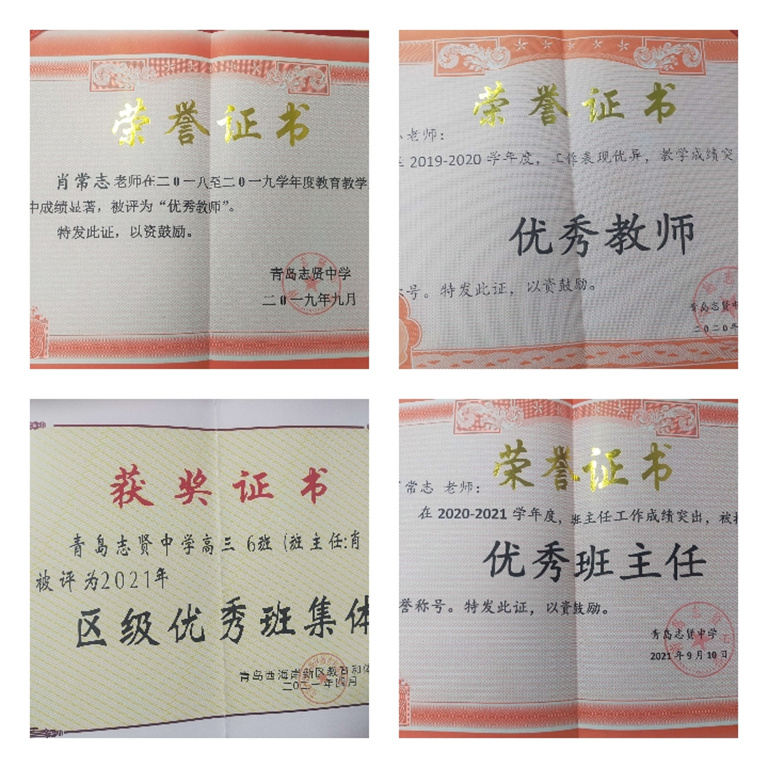 荣誉证书
肖常志老师在二0一八至二0一九学年度教育教学
中成绩显著，被评为“优秀教师”。
特发此证，以资鼓励。
青岛志贤中学
二0一九年九月
荣誉证书
老师：
2019-2020 学年度，工作表现优异，教学成绩突
优秀教师
号。特发此证，以资鼓励。
青岛志贤中
二〇二〇年
获奖证书
青岛志贤中学高三 6班 (班主任:肖
被评为2021年
区级优秀班集体
青岛西海岸新区教育和体
二〇二一年四月
荣誉证书
常志 老师：
在 2020-2021 学年度，班主任工作成绩突出，被
优秀班主任
誉称号。特发此证，以资鼓励。
青岛志贤中学
2021年9月10日